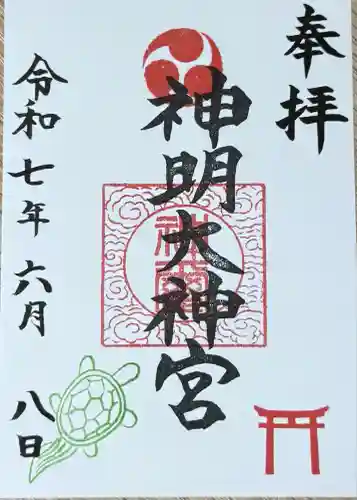 奉拝
神明大神宮
令和七年六月八日